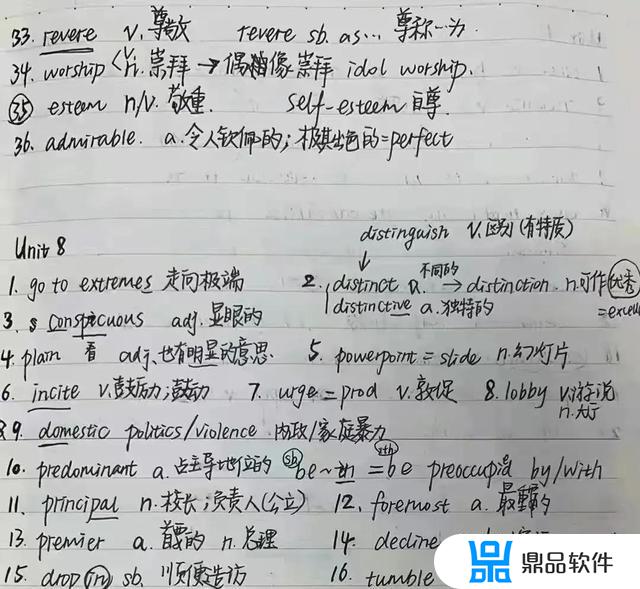 33. revere v. 尊敬 revere sb. as... 尊称…为
34. worship v. n. 崇拜 → 偶像崇拜 idol worship.
35 esteem n/v. 敬重. self-esteem 自尊
36. admirable. a. 令人钦佩的; 极其出色的=perfect
distinguish v. 区别 (有特质)
Unit 8
1. go to extremes 走向极端 2. distinct a. 不同的 → distinction. n. 可作优秀
distinctive a. 独特的 =excell
3. conspicuous adj. 显眼的
4. plain adj. 也有明显的意思. 5. powerpoint = slide n. 幻灯片
6. incite v. 鼓励; 鼓动 7. urge = prod v. 敦促 8. lobby v. 游说
n. 大厅
9. domestic politics/violence 内政/家庭暴力
10. predominant a. 占主导地位的 sb be~in sth = be preoccupied by/with
11. principal n. 校长; 负责人(公立) 12. foremost a. 最重要的
13. premier a. 首要的 n. 总理 14. decline
15. drop in sb. 顺便造访 16. tumble
鼎品软件